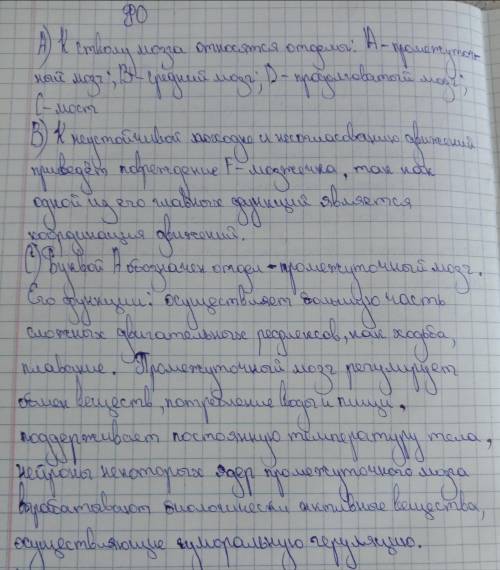 №0
А) К стволу мозга относятся отделы: А-промежуточ-
ный мозг; В-средний мозг; D-продолговатый мозг;
С-мост
В) К неустойчивой походке и несогласованию движений
приведёт повреждение F-мозжечка, так как
одной из его главных функций является
координация движений.
С) Буквой А обозначен отдел-промежуточный мозг.
Его функции: осуществляет большую часть
сложных двигательных рефлексов, как ходьба,
плавание. Промежуточный мозг регулирует
обмен веществ, потребление воды и пищи,
поддерживает постоянную температуру тела,
нейроны некоторых ядер промежуточного мозга
вырабатывают биологически активные вещества,
осуществляющие гуморальную регуляцию.